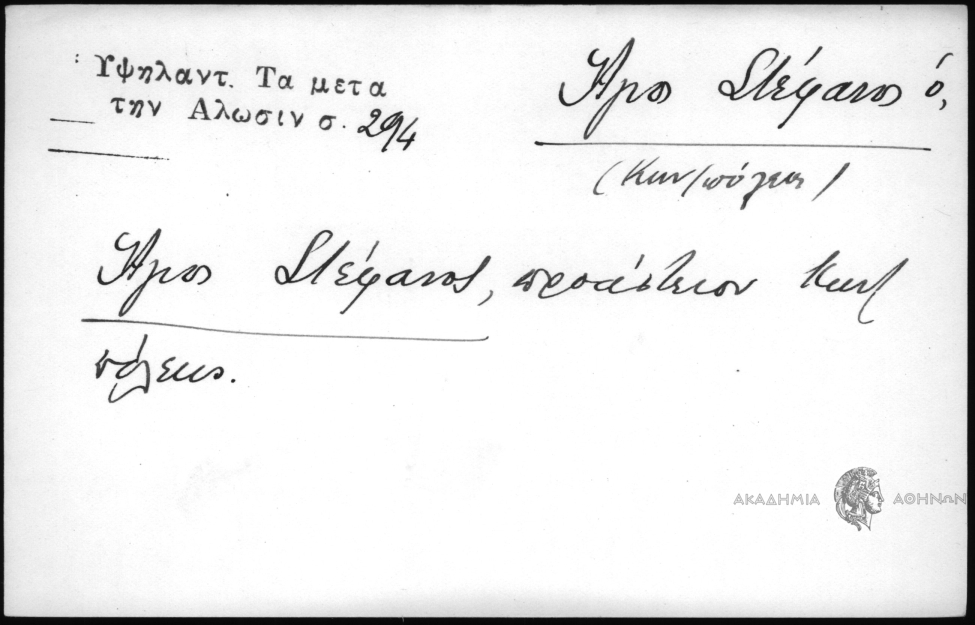 Υψηλαντ. Τα μετα
την Αλωσιν σ. 294
Άγιος Στέφανος ὁ,
(Κων/πόλεως)
Άγιος Στέφανος, προάστειον Κων/
πόλεως.
ΑΚΑΔΗΜΙΑ ΑΘΗΝΩΝ